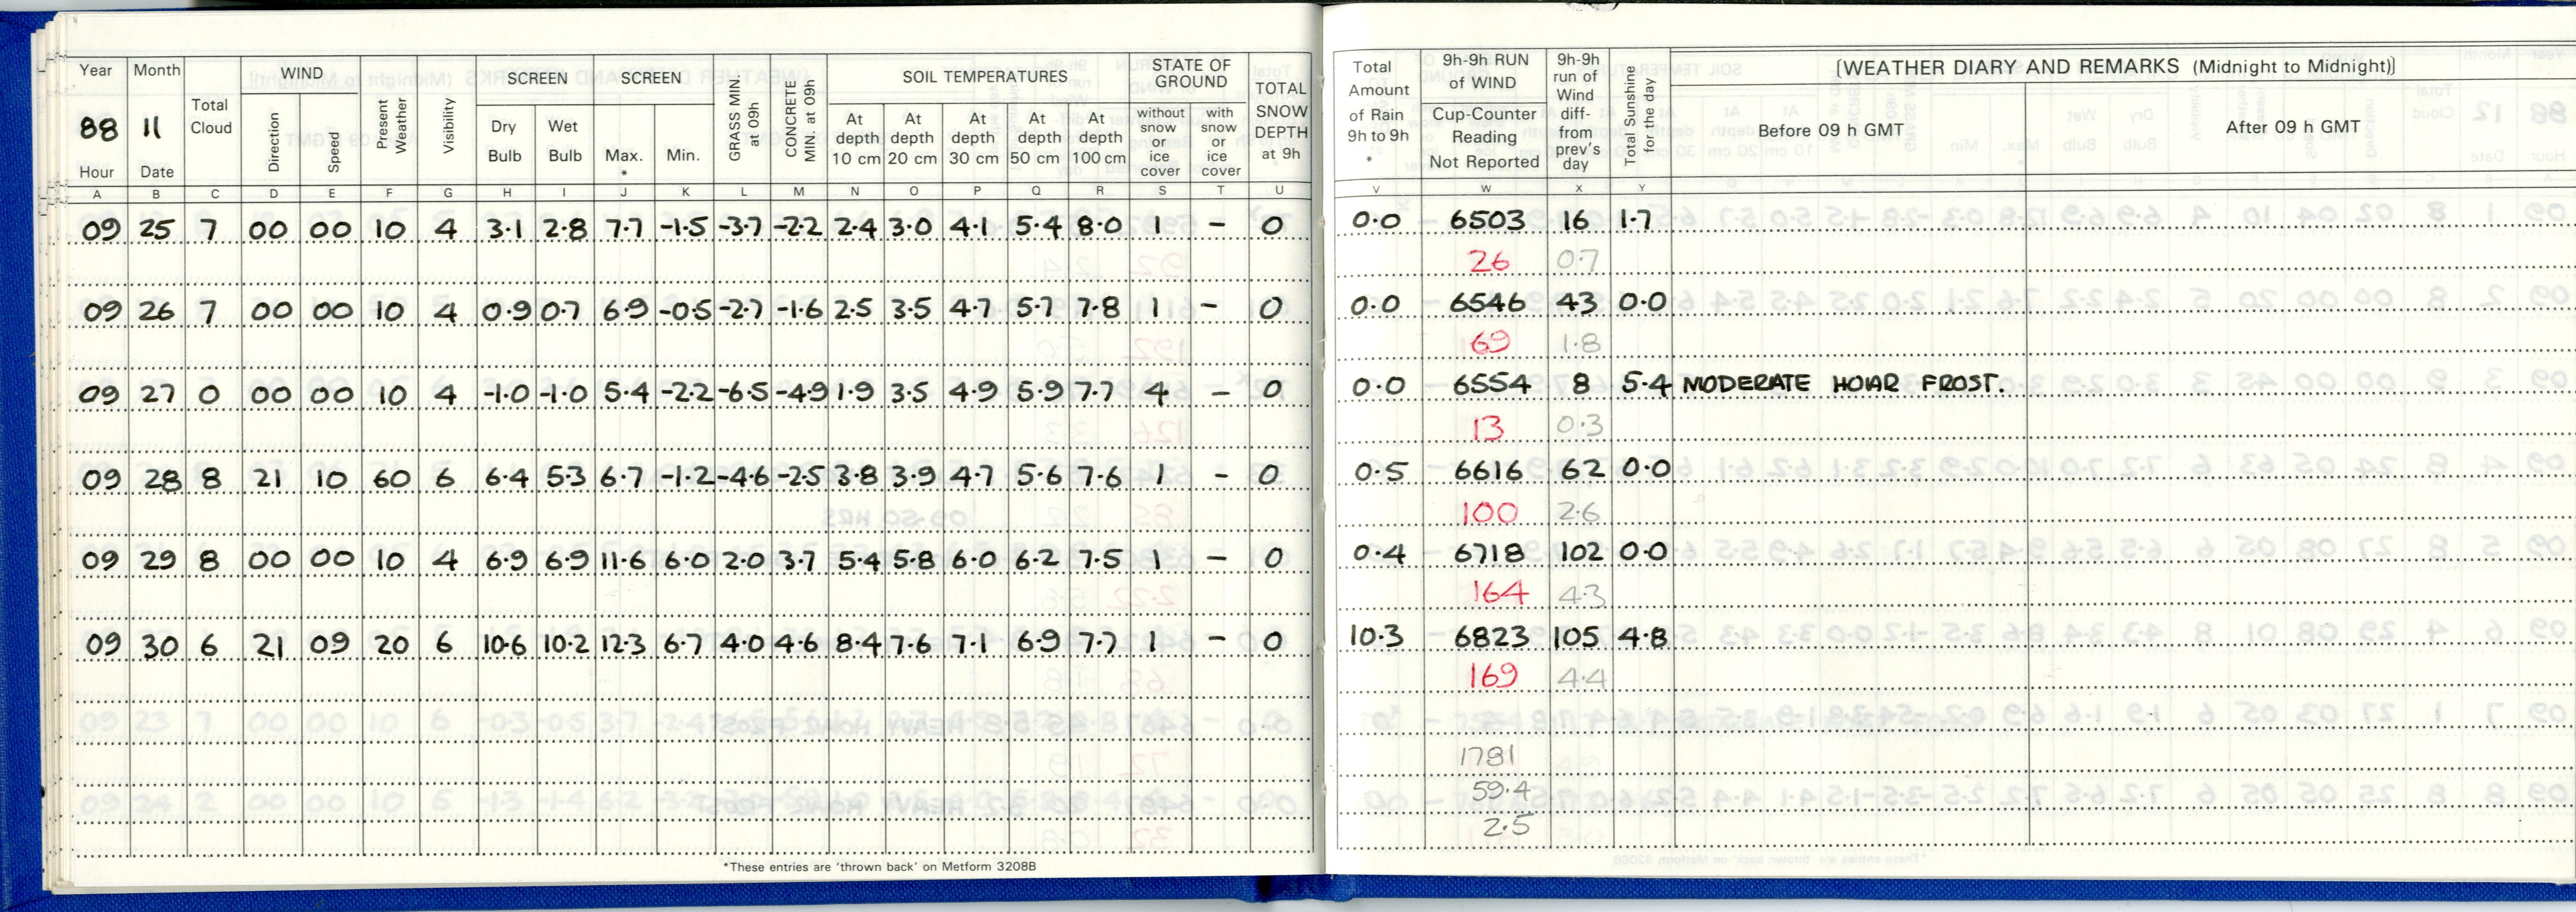 Year Month Total Cloud WIND Present Weather Visibility SCREEN SCREEN GRASS MIN. at 09h CONCRETE MIN at 09h SOIL TEMPERATURES STATE OF GROUND TOTAL SNOW DEPTH at 9h
88 11 Direction Speed Dry Bulb Wet Bulb Max. * Min. At depth 10 cm At depth 20 cm At depth 30 cm At depth 50 cm At depth 100 cm without snow or ice cover with snow or ice cover
Hour Date
A B C D E F G H I J K L M N O P Q R S T U
09 25 7 00 00 10 4 3.1 2.8 7.7 -1.5 -3.7 -2.2 2.4 3.0 4.1 5.4 8.0 1 - 0
09 26 7 00 00 10 4 0.9 0.7 6.9 -0.5 -2.7 -1.6 2.5 3.5 4.7 5.7 7.8 1 - 0
09 27 0 00 00 10 4 -1.0 -1.0 5.4 -2.2 -6.5 -4.9 1.9 3.5 4.9 5.9 7.7 4 - 0
09 28 8 21 10 60 6 6.4 5.3 6.7 -1.2 -4.6 -2.5 3.8 3.9 4.7 5.6 7.6 1 - 0
09 29 8 00 00 10 4 6.9 6.9 11.6 6.0 2.0 3.7 5.4 5.8 6.0 6.2 7.5 1 - 0
09 30 6 21 09 20 6 10.6 10.2 12.3 6.7 4.0 4.6 8.4 7.6 7.1 6.9 7.7 1 - 0
*These entries are 'thrown back' on Metform 3208B
Total Amount of Rain 9h to 9h * 9h-9h RUN of WIND Cup-Counter Reading Not Reported 9h-9h run of Wind diff- from prev's day Total Sunshine for the day [WEATHER DIARY AND REMARKS (Midnight to Midnight)]
Before 09 h GMT After 09 h GMT
V W X Y
0.0 6503 16 1.7
26 0.7
0.0 6546 43 0.0
69 1.8
0.0 6554 8 5.4 MODERATE HOAR FROST.
13 0.3
0.5 6616 62 0.0
100 2.6
0.4 6718 102 0.0
164 4.3
10.3 6823 105 4.8
169 4.4
1781
59.4
2.5